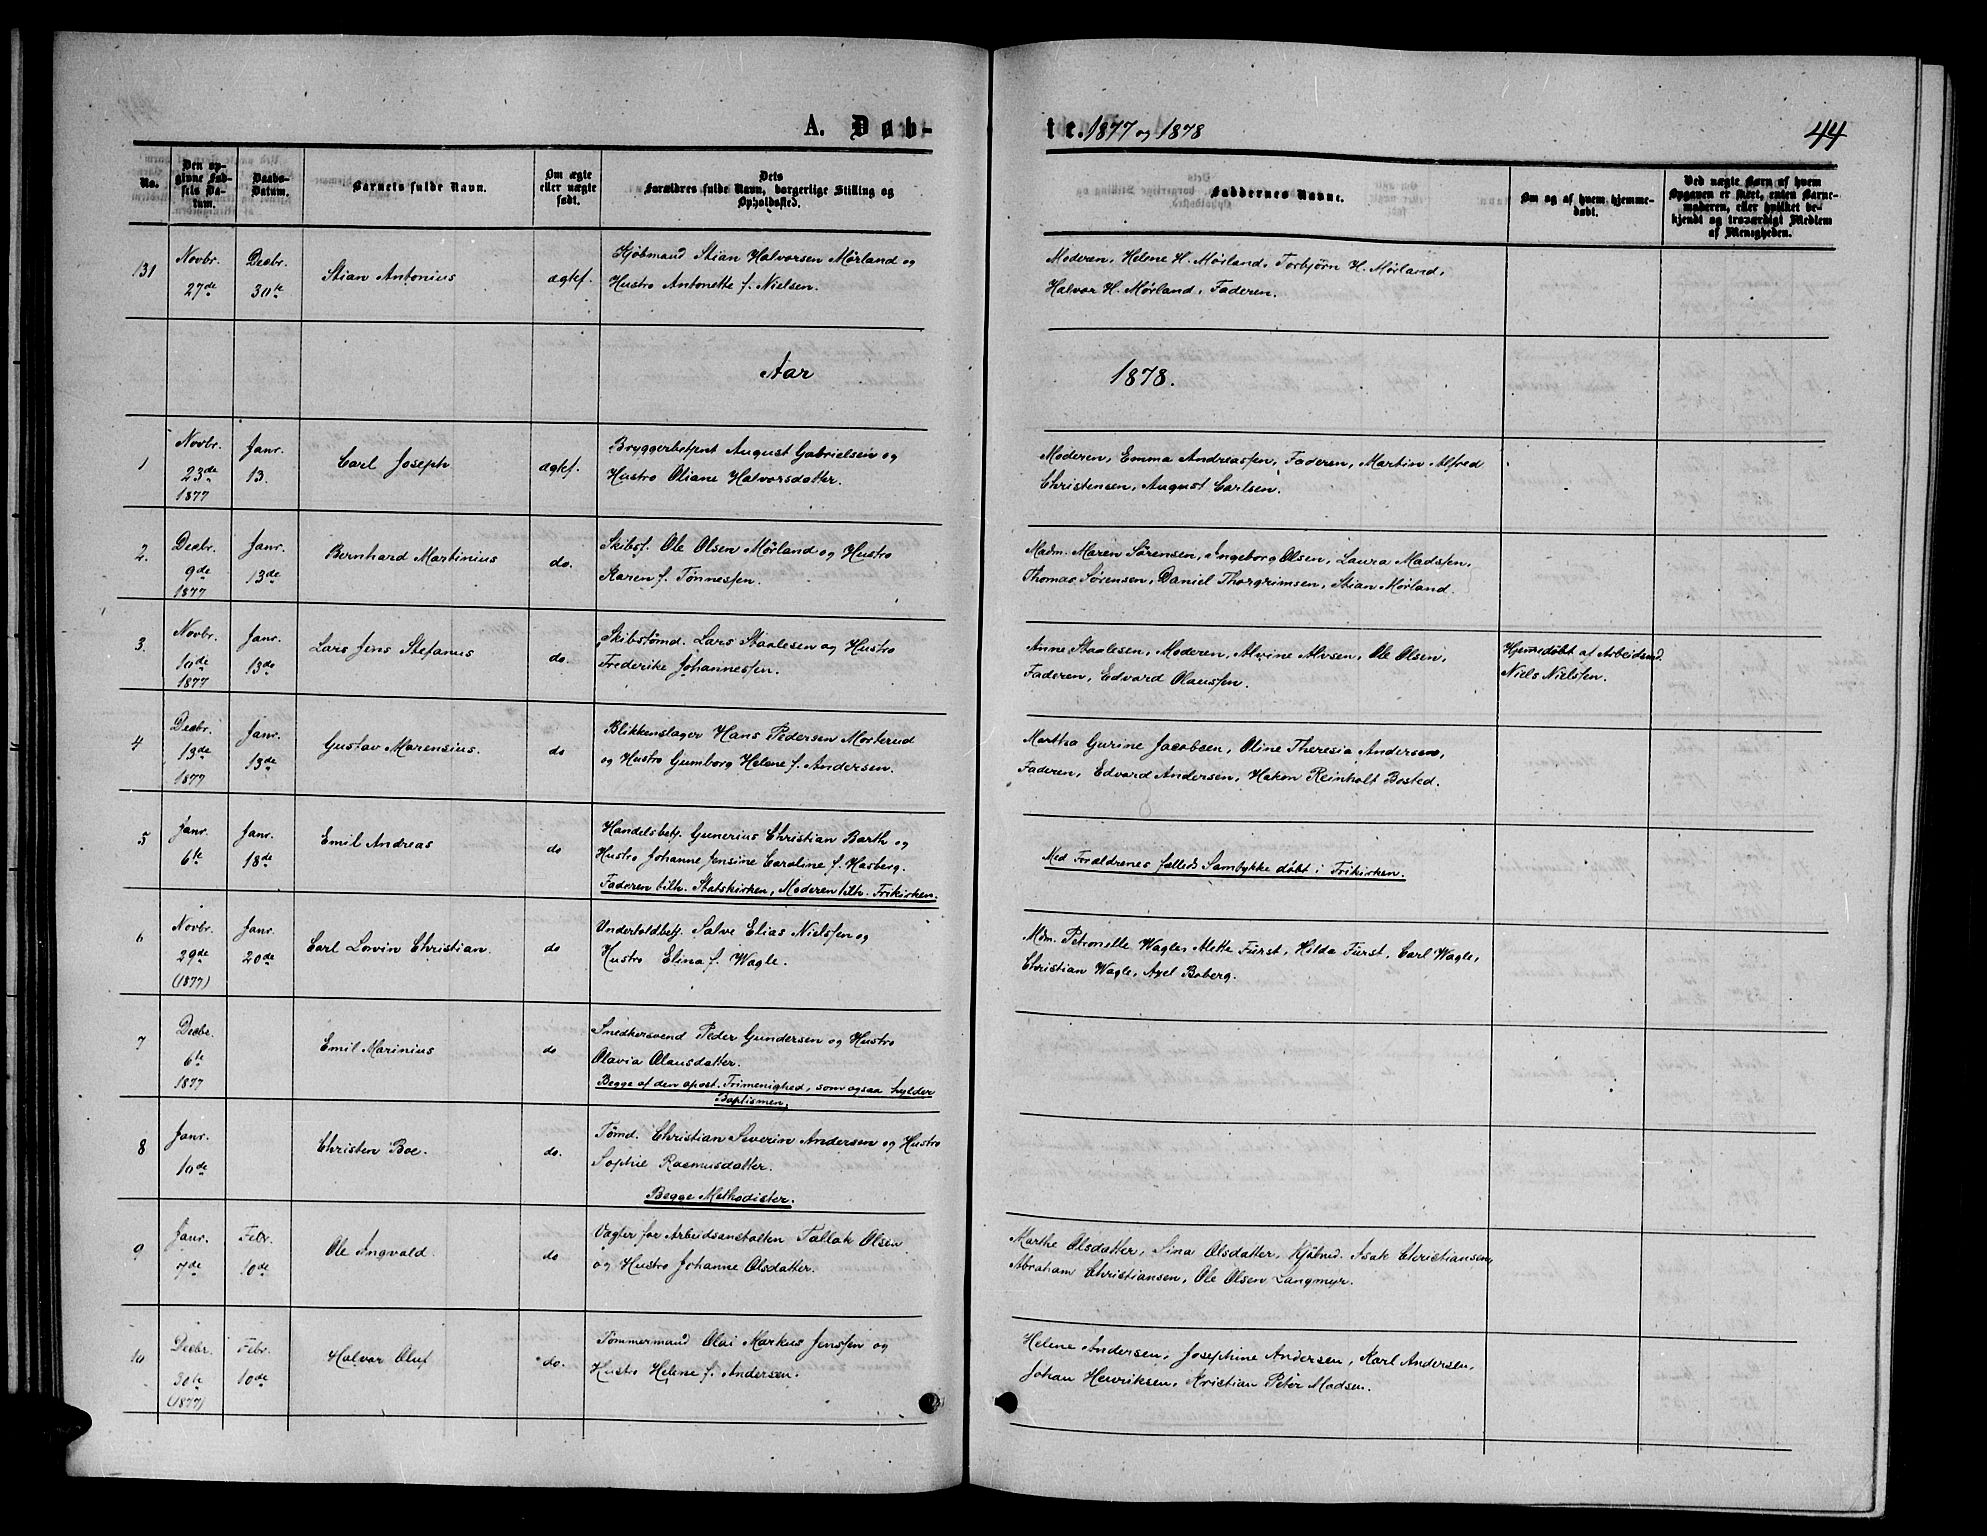 A. Døb-
te. 1877 og 1878
44
No.
Den op-
givne Fød-
sels Da-
tum.
Daabs-
Datum.
Barnets fulde Navn.
Om ægte
eller uægte
født.
Dets
Forældres fulde Navn, borgerlige Stilling og
Opholdssted.
Faddernes Navne.
Om og af hvem hjemme-
døbt.
Ved uægte Børn af hvem
Opgaven er skeet, enten Barne-
moderen, eller hvilket be-
kjendt og troværdigt Medlem
af Menigheden.
131
Novbr.
27de
Decbr.
30te
Stian Antonius
ægtef.
Kjøbmand Stian Halvorsen Mørland og
Hustro Antonette f. Nielsen.
Moderen, Helene H. Mørland, Torbjörn H. Mørland,
Halvor H. Mørland, Faderen.
Aar
1878.
1
Novbr.
23de
1877
Janr.
13.
Carl Joseph
ægtef.
Bryggerbetjent August Gabrielsen og
Hustro Oliane Halvorsdatter.
Moderen, Emma Andreassen, Faderen, Martin Alfred
Christensen, August Carlsen.
2.
Decbr.
9de
1877
Janr.
13de
Bernhard Martinius
do.
Skibsf. Ole Olsen Mørland og Hustro
Karen f. Tønnessen.
Madm. Maren Sørensen, Ingeborg Olsen, Laura Madssen,
Thomas Sørensen, Daniel Thorgrimsen, Stian Mørland.
3.
Novbr.
10de
1877
Janr.
13de
Lars Jens Stefanus
do.
Skibstømd. Lars Staalesen og Hustro
Frederike Johannessen.
Anne Staalesen, Moderen, Alvine Alvsen, Ole Olsen,
Faderen, Edvard Olaussen.
Hjemmedøbt af Arbeidsmd.
Niels Nielssen.
4
Decbr.
13de
1877
Janr.
13de
Gustav Marensius.
do
Blikkenslager Hans Pedersen Mørterud
og Hustro Gumborg Helene f. Andersen.
Martha Gurine Jacobsen, Oline Theresia Andersen,
Faderen, Edvard Andersen, Hakon Reinholt Bosted.
5
Janr.
6te
Janr.
18de
Emil Andreas
do
Handelsbetj. Gunerius Christian Barth og
Hustro Johanne Jensine Caroline f. Hasberg.
Faderen tilh. Statskirken, Moderen tilh. Frikirken.
Med Foraldrenes fælleds Samtykke døbt i Frikirken.
6
Novbr.
29de
(1877)
Janr.
20de
Carl Lovin Christian.
do
Undertoldbetj. Salve Elias Nielssen og
Hustro Elina f. Wagle.
Mdm. Petronelle Wagle, Alette Fürst, Hilda Fürst, Carl Wagle,
Christian Wagle, Axel Boberg.
7
Decbr.
6te
1877
Emil Marinius
do
Snedkersvend Peder Gundersen og Hustro
Olavia Olausdatter.
Begge af den apost. Frimenighed, som ogsaa hylder
Baptismen.
8
Janr.
10de
Christen Boe.
do.
Tømd. Christian Severin Andersen og Hustro
Sophie Rasmusdatter.
Begge Methodister.
9
Janr.
7de
Febr.
10de
Ole Ingvald.
do
Vagter for Arbeidsanstalten Tallak Olsen
og Hustro Johanne Olsdatter.
Marthe Olsdatter, Sina Olsdatter, Kjøbmd. Isak Christiansen,
Abraham Christiansen, Ole Olsen Langmyr.
10
Decbr.
30te
(1877)
Febr.
10de
Halvor Oluf
do.
Tømmermand Olai Markus Jenssen og
Hustro Helene f. Andersen.
Helene Andersen, Josephine Andersen, Karl Andersen,
Johan Henriksen, Kristian Peter Madsen.